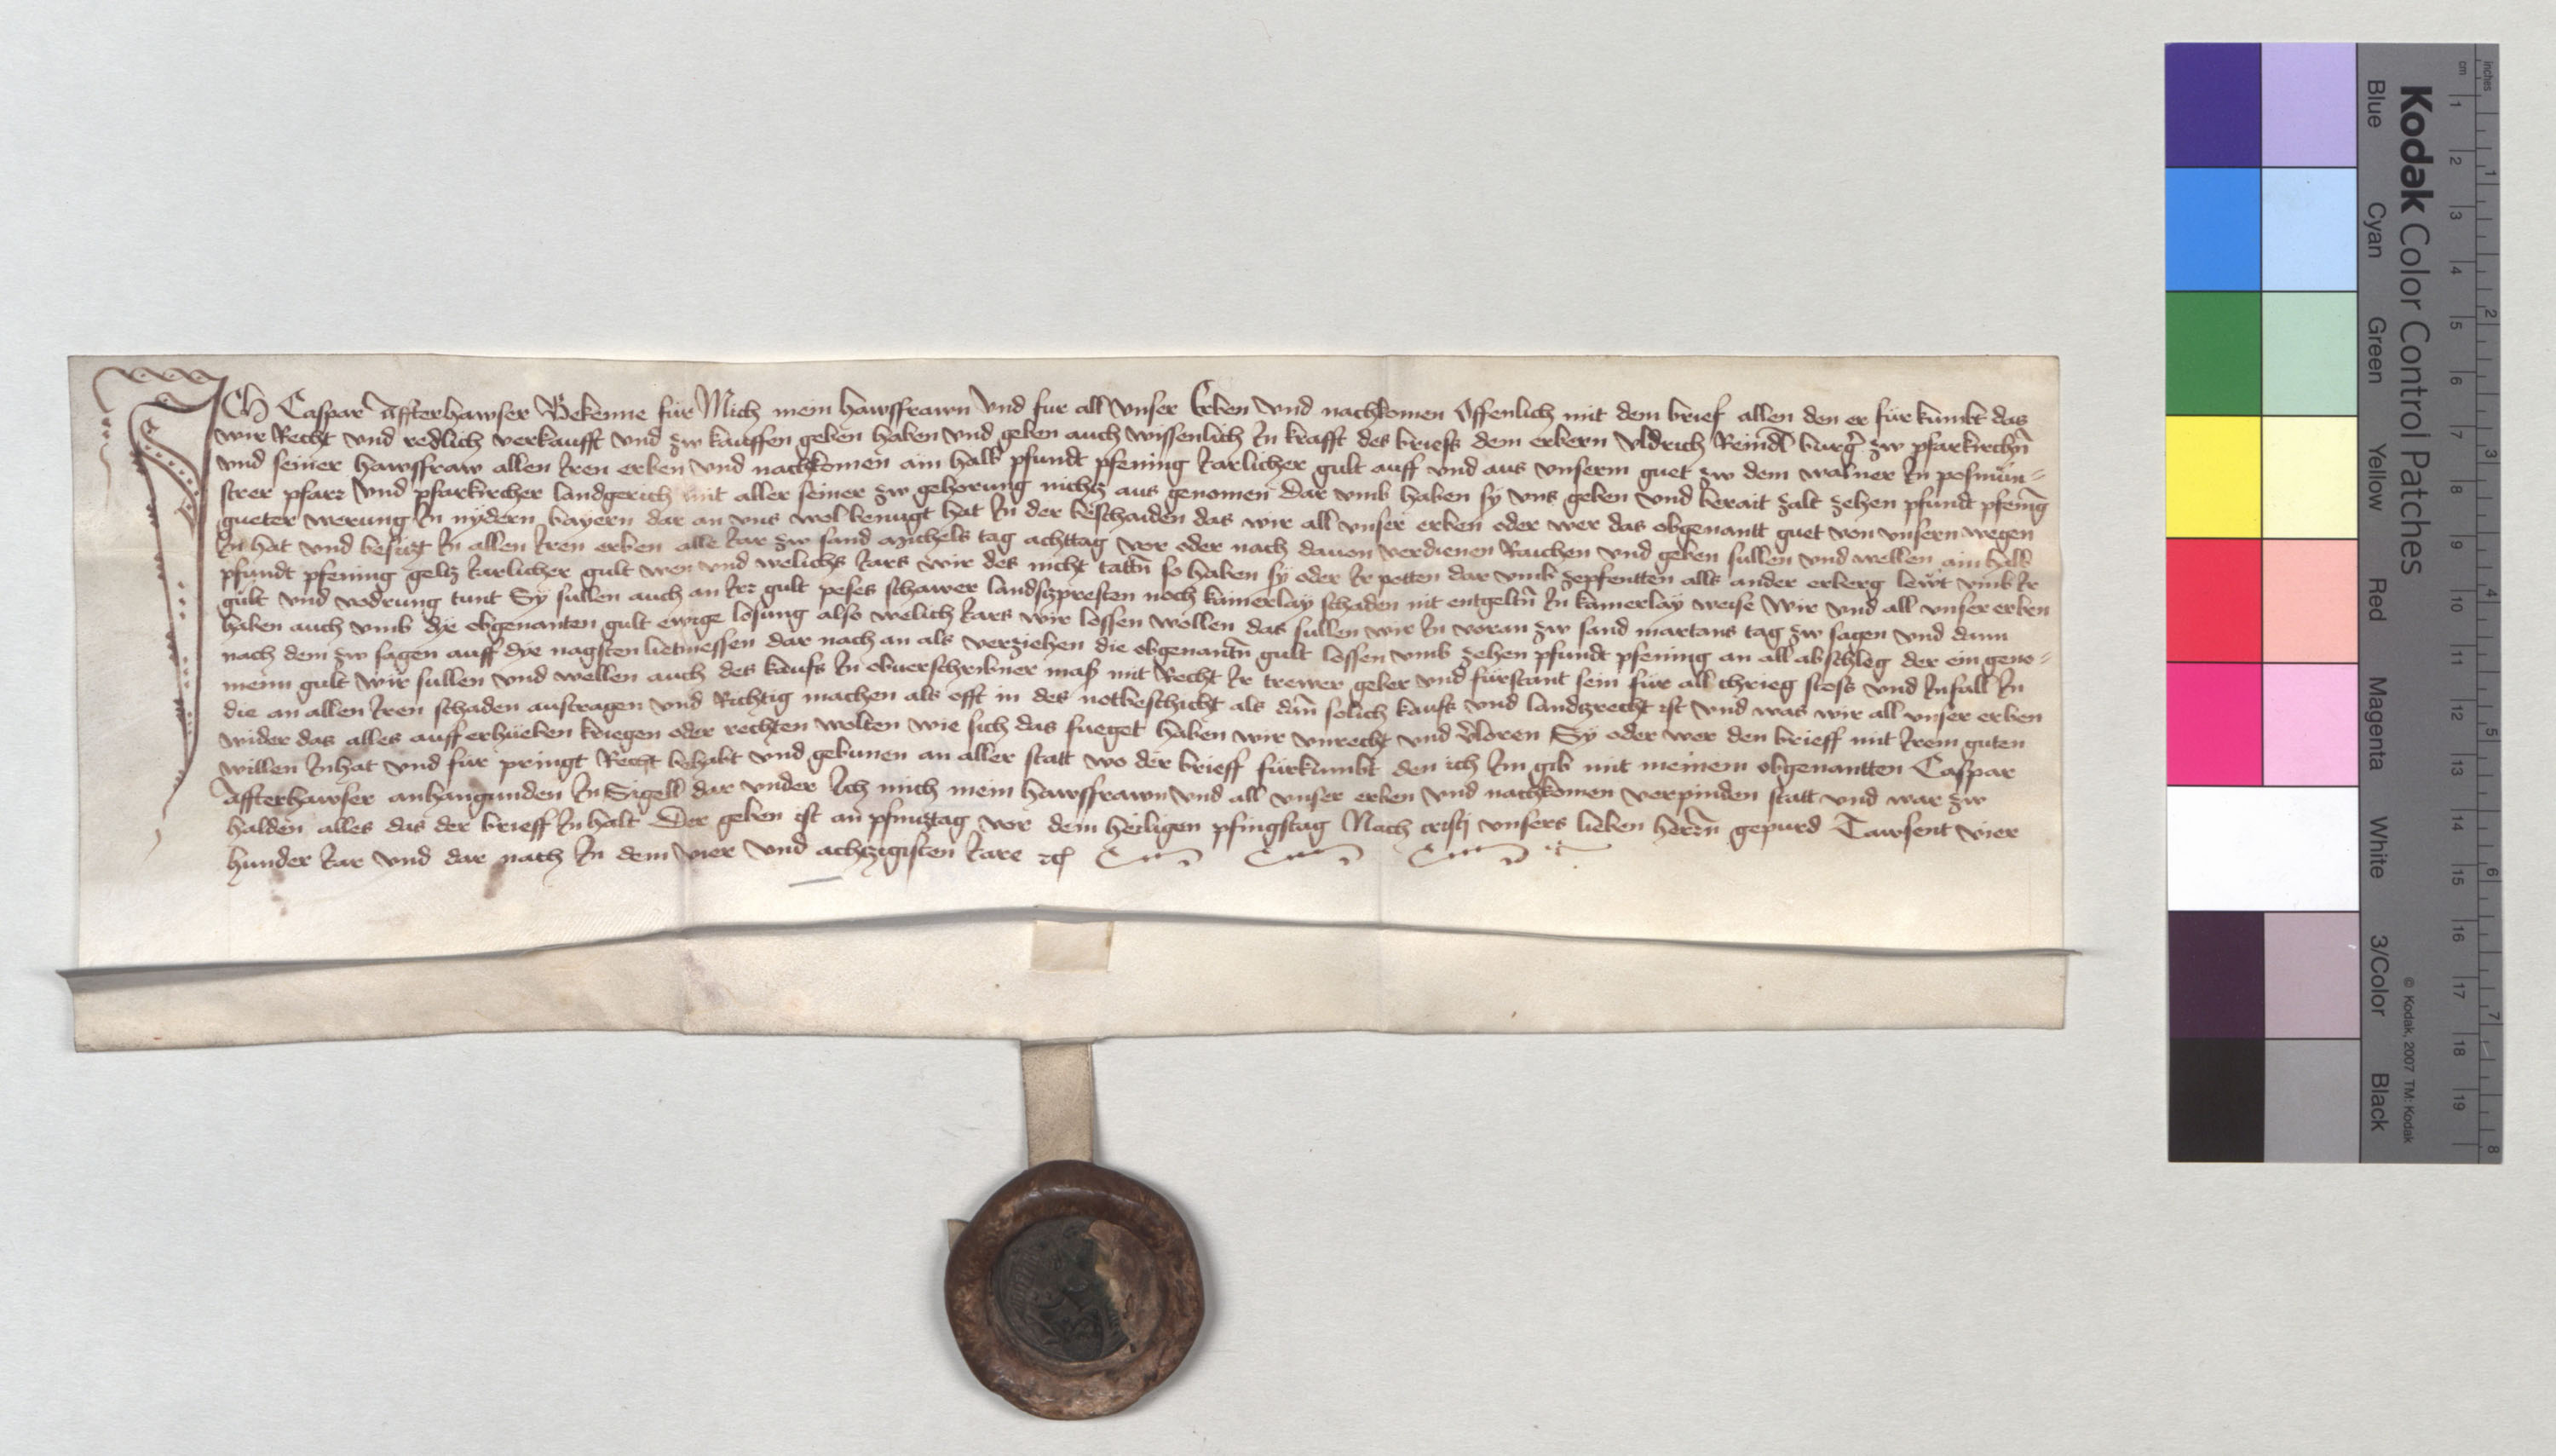 ICh Caspar Affterhawser Bekenne für Mich mein hawsffrawn Vnd fur all Vnser Erben Vnd nachkomen Offenlich mit dem brief allen den er für kumbt das
wir Recht vnd redlich verkaufft vnd zw kauffen geben haben vnd geben auch wissenlich In krafft des briefs dem erbern Vldrich Reindl burger zw pfarkirchn̄
vnd seiner hawsffraw allen Iren erben vnd nachkomen ain halb pfundt pfening Iarlicher gult auff vnd aus vnserm guet zw dem walner In posmün=
strer pfarr Vnd pfarkircher landgerich mit aller seiner zw gehorung nichtz aus genomen Dar vmb haben sy vns geben Vnd berait zalt zehen pfundt pfenīg
gueter werung In nydern bayern dar an vns wol benugt hat In der beschaiden das wir all vnser erben oder wer das obgenantt guet von vnsern wegen
In hat vnd besitzt In allen Iren erben alle Iar zw sand Michels tag achttag vor oder nach dauon verdienen Raichen vnd geben sullen vnd wellen ain halb
pfundt pfening geltz Iarlicher gult wen vnd welichs Iars wir des nicht tattn̄ so haben sy oder Ir potten dar vmb zepfentten alls ander erberg lewt vmb Ir
gult vnd vodrung tunt Sy sullen auch an Irr gult peses schawer landszpresten noch kainerlay schaden nit entgeltn̄ In kainerlay weise Wir vnd all vnser erben
haben auch vmb dye obgenanten gult ewige losung also welich Iars wir lossen wollen das sullen wir In voran zw sand martans tag zw sagen vnd dann
nach dem zw sagen auff dye nagsten lietmessen dar nach an als verziehen die obgenantn̄ gult lossen vmb zehen pfundt pfening an all abschleg der ein geno=
menn gult Wir sullen vnd wellen auch des kaufs In obuerschribner mass mit Recht Ir trewer geber vnd fürstant sein für all chrieg stoss vnd Infall In
die an allen Iren schaden austragen vnd Richtig machen als offt in des notbeschicht als dān solich kaufs vnd landszrecht ist vnd was wir all vnser erben
wider das alles auff erhueben kriegen oder rechten wolten wie sich das fueget haben wir vnrecht vnd v̄loren Sy oder wer den brieff mit Irem guten
willen Inhat vnd für pringt Recht behabt vnd gebunen an aller statt wo der brieff fürkumbt den ich Im gib mit meinem obgenantten Caspar
Affterhawser anhangunden In Sigell dar vnder Ich mich mein hawsffrawn Vnd all vnser erben vnd nachkomen verpinden statt vnd war zw
halden alles das der brieff Inhalt Der geben ist an pfincztag vor dem heiligen pfingstag Nach cristj vnsers lieben herrn̄ gepurd Tawsent vier
hunder Iar vnd dar nach In dem vier vnd achtzigisten Iare rc
Kodak Color Control Patches
Blue Cyan Green Yellow Red Magenta White 3/Color Black
© Kodak, 2007 TM: Kodak
cm 1 2 3 4 5 6 7 8 9 10 11 12 13 14 15 16 17 18 19
inches 1 2 3 4 5 6 7 8